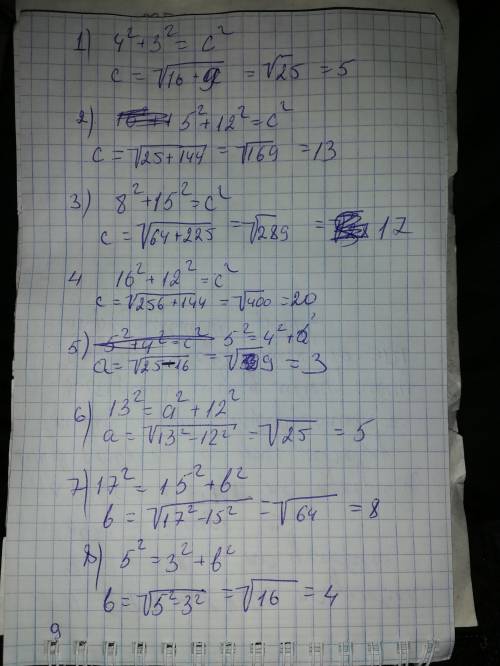 1) 4² + 3² = c²
c = √16 + 9 = √25 = 5
2) 5² + 12² = c²
c = √25 + 144 = √169 = 13
3) 8² + 15² = c²
c = √64 + 225 = √289 = 17
4 16² + 12² = c²
c = √256 + 144 = √400 = 20
5) 5² + 4² = c² 5² = 4² + a²
a = √25 - 16 = √9 = 3
6) 13² = a² + 12²
a = √13² - 12² = √25 = 5
7) 17² = 15² + b²
b = √17² - 15² = √64 = 8
8) 5² = 3² + b²
b = √5² - 3² = √16 = 4
9